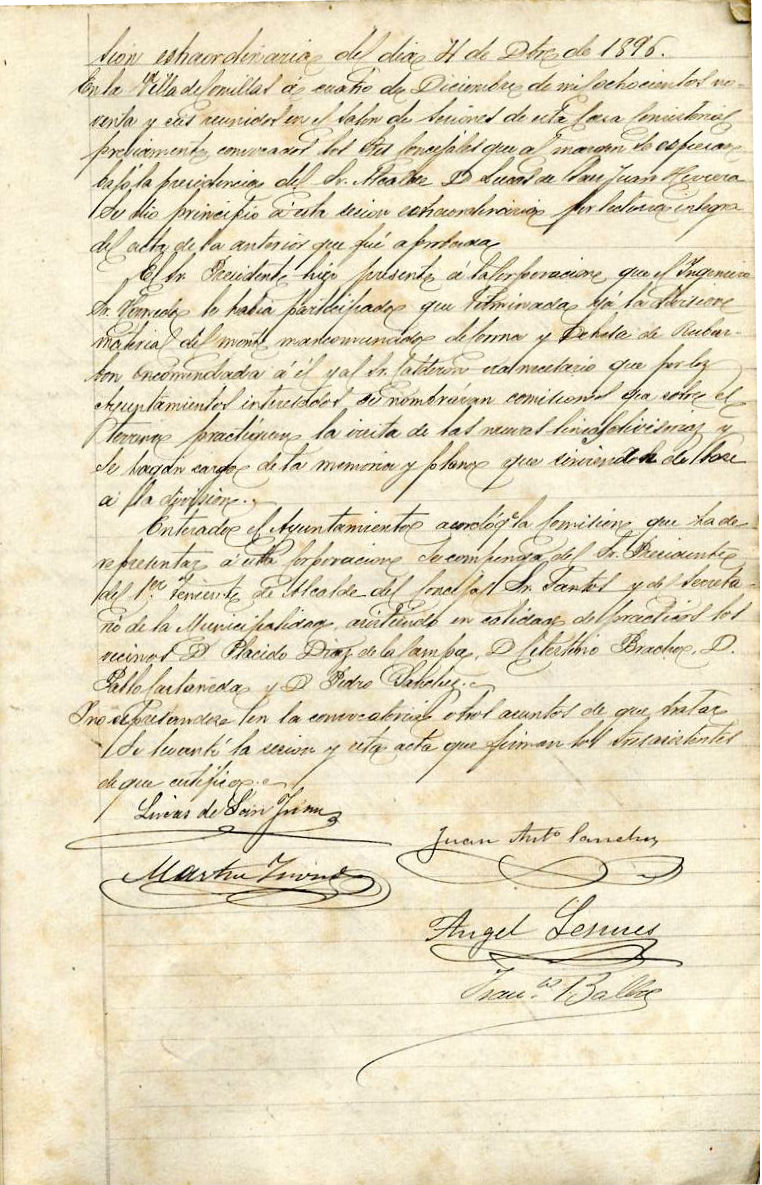 sion extraordinaria del dia 4 de Dbre de 1896.
En la Villa de Comillas á cuatro de Diciembre de mil ochocientos no-
venta y seis reunidos en el salon de sesiones de esta Casa Consistorial
previamente convocados los Sres Concejales que al margen se espresan
bajo la presidencia del Sr. Alcalde D Lucas de San Juan Herrera
Se dio principio á esta sesion extraordinaria por lectura integra
del acta de la anterior que fué aprobada
El Sr. Presidente hizo presente á la Corporacion que el Ingeniero
Sr. le habia participado que terminada yá la division
material del monte mancomunado de Corona y Dehesa de Rubar-
bon encomendada á él y al Sr. Calderon era necesario que por los
Ayuntamientos interesados se nombráran comisiones que sobre el
terreno practiquen la visita de las nuevas lineas divisorias y
se hagan cargo de la memoria y plano que sirvieron de base
a la division.
Enterado el Ayuntamiento acordó q.e la Comision que ha de
representar á esta Corporacion se componga del Sr. Presidente
del 1.er Teniente de Alcalde del Concejal Sr. Santos y del Secreta-
rio de la Municipalidad, asistiendo en calidad de practicos los
vecinos D Placido Diaz de la Campa, D Celestino Bracho, D.
Pablo Castañeda y D Pedro Sanchez.
I no espresandose en la convocatoria otros asuntos de que tratar
Se levantó la sesion y esta acta que firman los Sres asistentes
de que certifico.
Lucas de San Juan
Juan Ant.o Sanchez
Martin
Angel
Fran.co Balbás